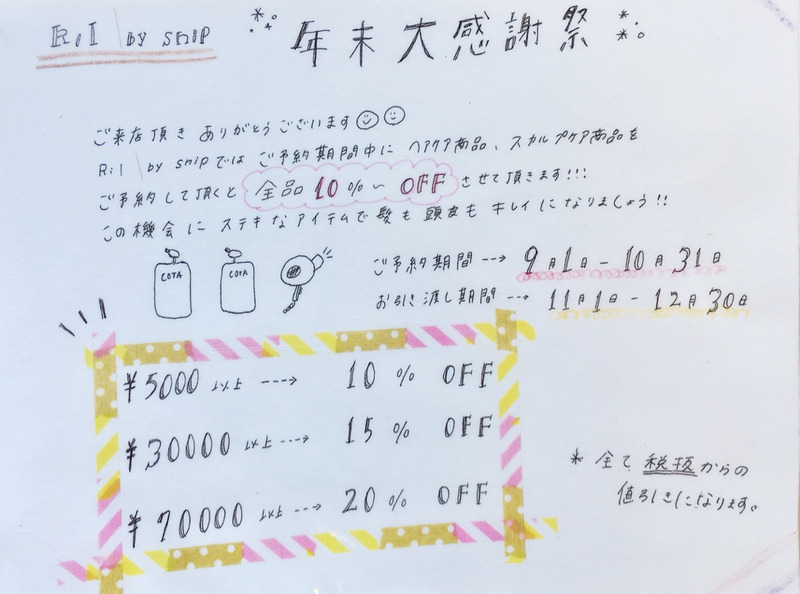 Ril by snip
年末大感謝祭
ご来店頂き ありがとうございます
Ril by snipでは ご予約期間中に ヘアケア商品、スカルプケア商品を
ご予約して頂くと 全品10%〜OFF させて頂きます!!!
この機会に ステキなアイテムで髪も頭皮も キレイになりましょう!!
COTA COTA
ご予約期間 --→ 9月1日 - 10月31日
お引き渡し期間 --→ 11月1日 - 12月30日
¥5000 以上 ---→ 10% OFF
¥30000 以上 ---→ 15% OFF
¥70000 以上 ---→ 20% OFF
* 全て 税抜からの
値引きになります。